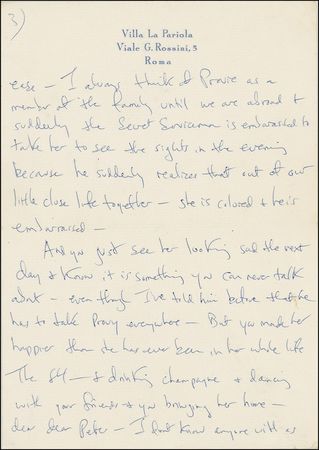 3)
Villa La Pariola
Viale G. Rossini, 5
Roma
ease — I always think of Provie as a
member of the family until we are abroad &
suddenly the Secret Serviceman is embarrassed to
take her to see the sights in the evening
because he suddenly realizes that out of our
little close life together — she is colored & he is
embarrassed —
And you just see her looking sad the next
day & know it is something you can never talk
about — even though I've told him before that he
has to take Provy everywhere — But you made her
happier than she has ever been in her whole life
The — & drinking champagne & dancing
with your friends & you bringing her home —
dear dear Peter — I don't know anyone with as